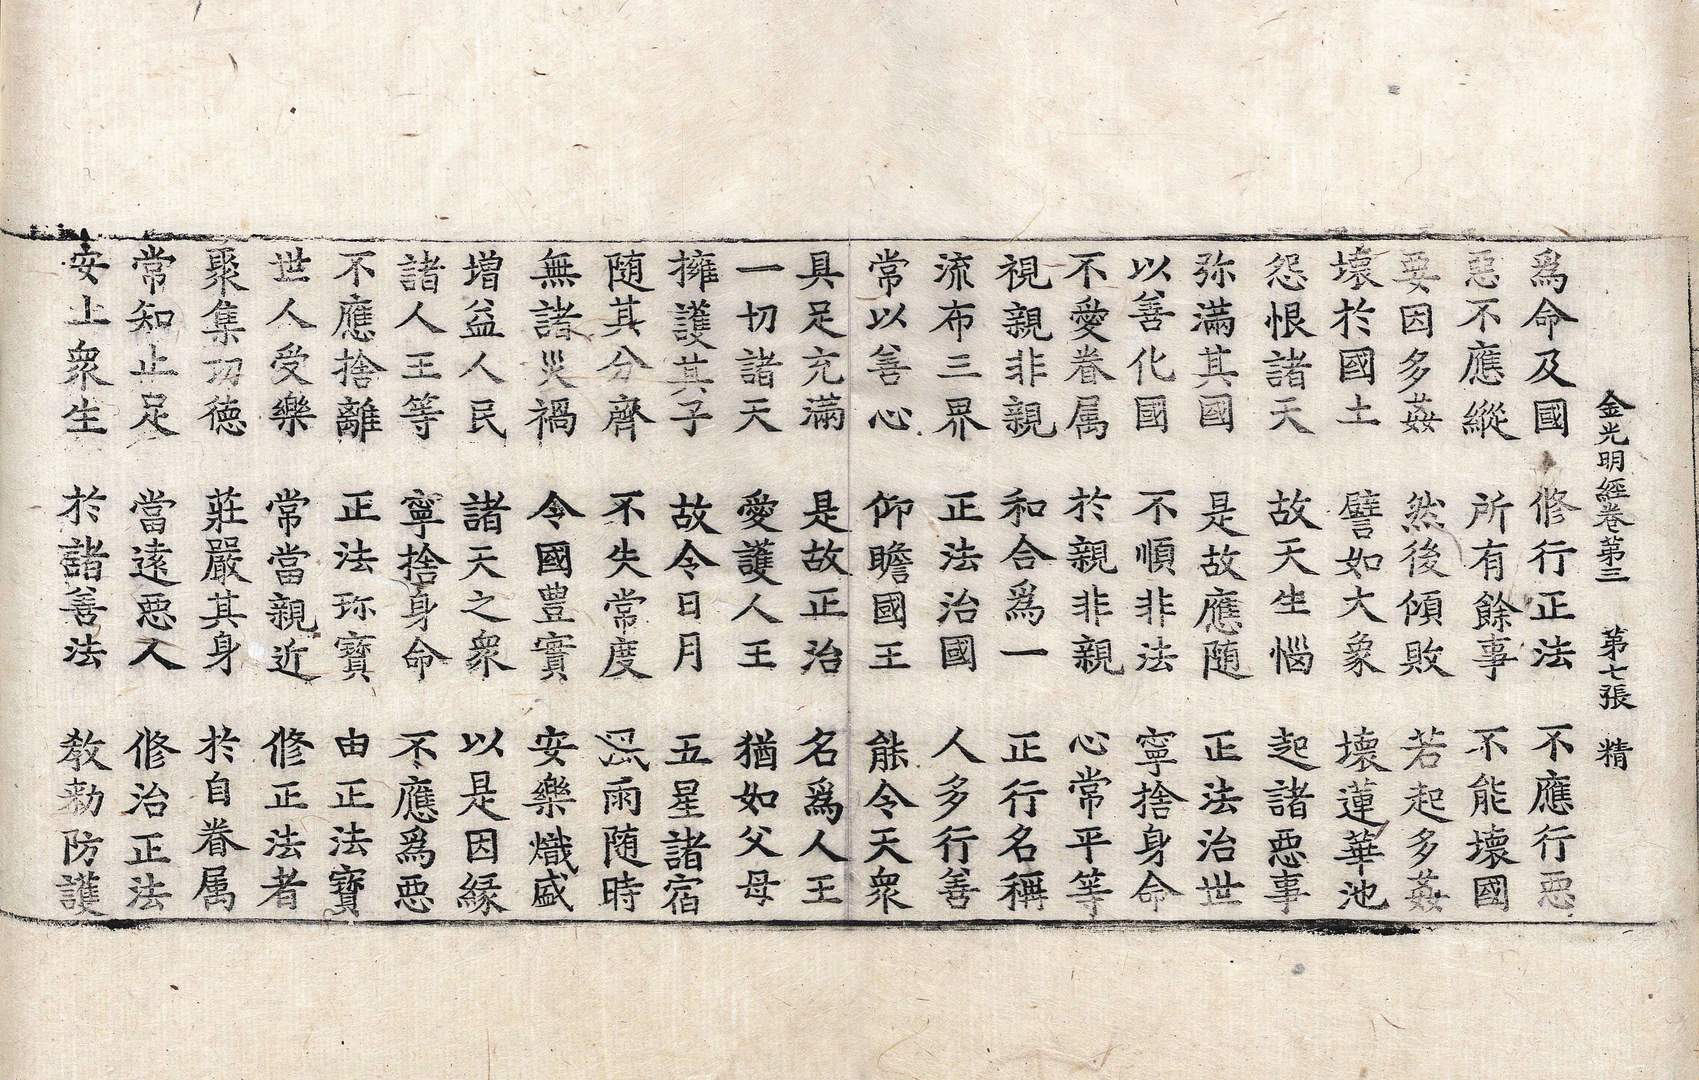 金光明經卷第三 第七張 精
爲命及國 修行正法 不應行惡
惡不應縱 所有餘事 不能壞國
要因多姦 然後傾敗 若起多姦
壞於國土 譬如大象 壞蓮華池
怨恨諸天 故天生惱 起諸惡事
弥滿其國 是故應随 正法治世
以善化國 不順非法 寧捨身命
不愛眷属 於親非親 心常平等
視親非親 和合爲一 正行名稱
流布三界 正法治國 人多行善
常以善心 仰瞻國王 能令天衆
具足充滿 是故正治 名爲人王
一切諸天 愛護人王 猶如父母
擁護其子 故令日月 五星諸宿
随其分齊 不失常度 風雨随時
無諸災禍 令國豊實 安樂熾盛
增益人民 諸天之衆 以是因緣
諸人王等 寧捨身命 不應爲惡
不應捨離 正法珎寶 由正法寶
世人受樂 常當親近 修正法者
聚集功德 莊嚴其身 於自眷属
常知止足 當遠惡人 修治正法
安止衆生 於諸善法 教勑防護